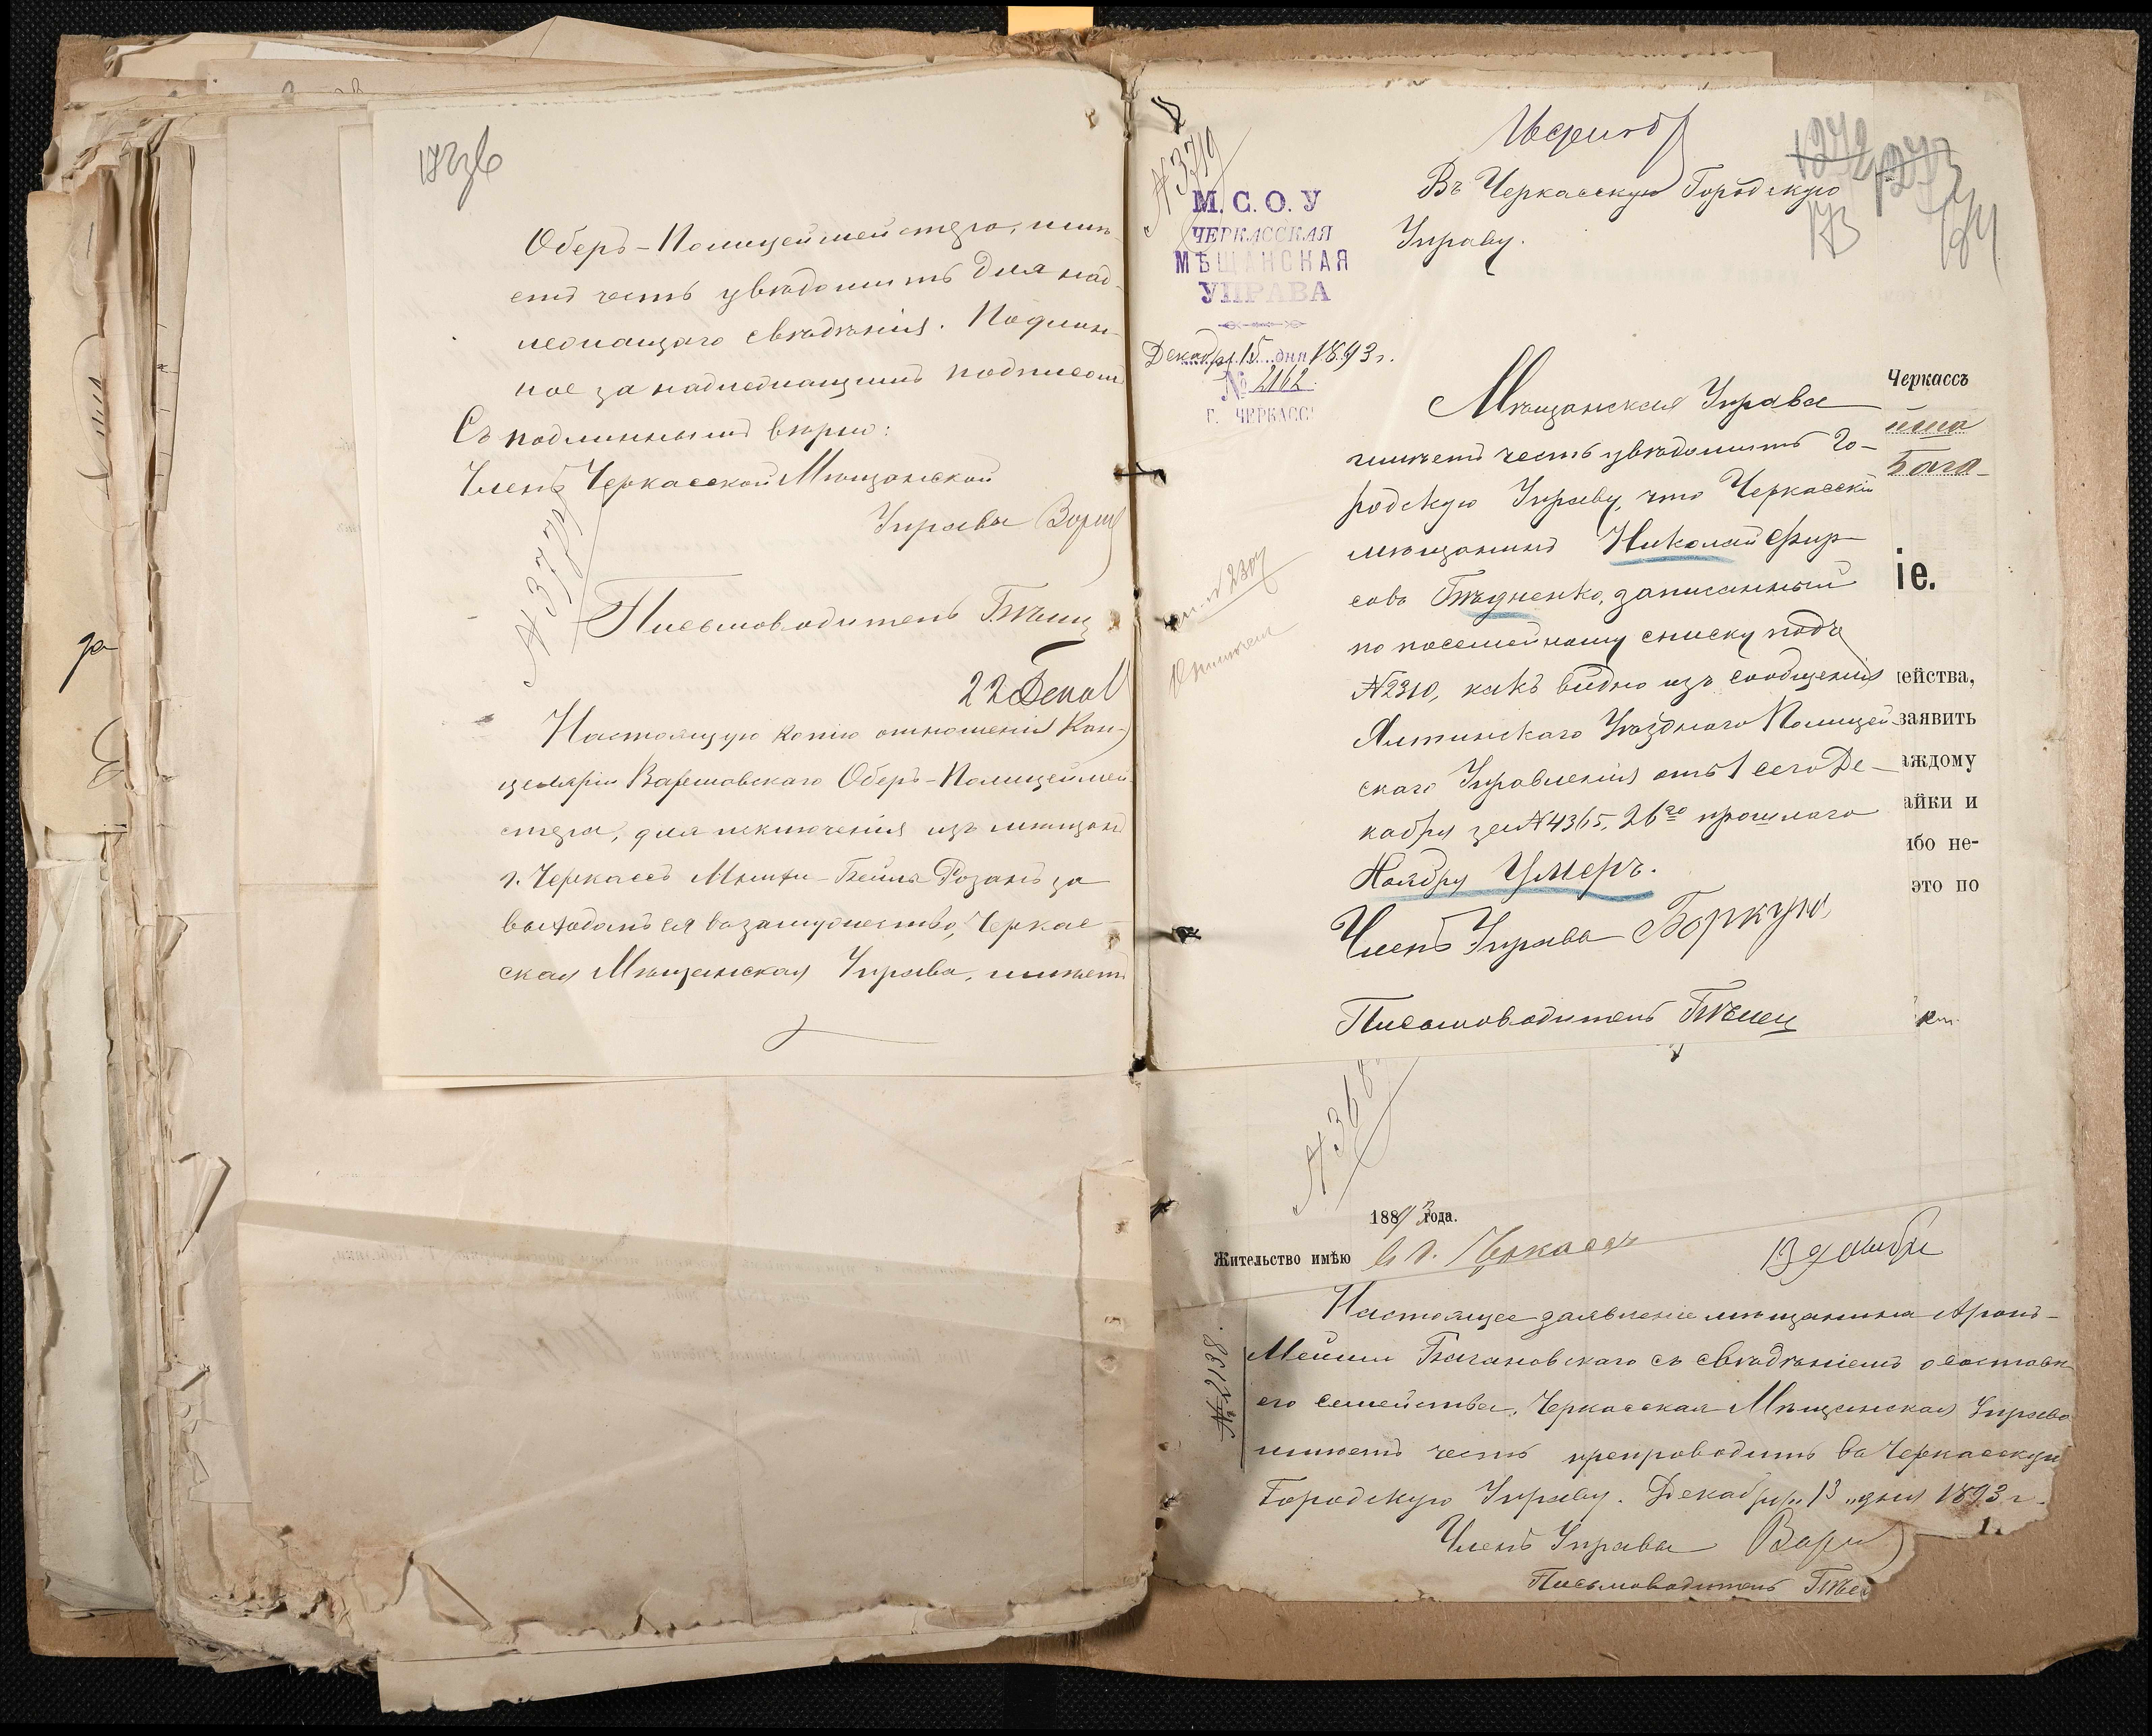 Оберъ-Полицеймейстера, имѣ-
етъ честь увѣдомить для над-
лежащаго свѣдѣнія. Подлин-
ное за надлежащимъ подписомъ
Съ подлиннымъ вѣрно:
Членъ Черкасской Мѣщанской
Управы
№ 3777
Письмоводитель Бѣлец
22 Декаб
Настоящую копію отношенія Кан-
целяріи Варшавскаго Оберъ-Полицеймей-
стера, для исключенія изъ мѣщанъ
г. Черкассъ Розанъ за
выходомъ ея въ замужество, Черкас-
ская Мѣщанская Управа, имѣетъ
за
№ 3719
М. С. О. У
ЧЕРКАССКАЯ
МѢЩАНСКАЯ
УПРАВА
Декабря 15 дня 1893 г.
№ 2162
Г. ЧЕРКАССЫ
1272 1273
173
Въ Черкасскую Городскую
Управу.
Мѣщанская Управа
имѣетъ честь увѣдомить Го-
родскую Управу, что Черкасскій
мѣщанинъ Николай Фир-
совъ Бѣдненко, записанный
по посемейному списку подъ
№ 2310, какъ видно изъ сообщенія
Ялтинскаго Уѣзднаго Полицей-
скаго Управленія отъ 1 сего Де-
кабря за № 4365, 26го прошлаго
Ноября умеръ.
Членъ Управы Боркун
Письмоводитель Бѣлец
Черкассъ
Бага-
іе.
ейства,
заявить
аждому
айки и
ибо не-
это по
№ 368
1893 года.
Жительство имѣю в г. Черкассъ
13 декабря
№ 2138.
Настоящее заявленіе мѣщанина Аронъ-
Мейши Багановскаго съ свѣдѣніемъ о составѣ
его семейства, Черкасская Мѣщанская Управа
имѣетъ честь препроводить въ Черкасскую
Городскую Управу. Декабря „13„ дня 1893 г.
Членъ Управы
Письмоводитель Бѣлец